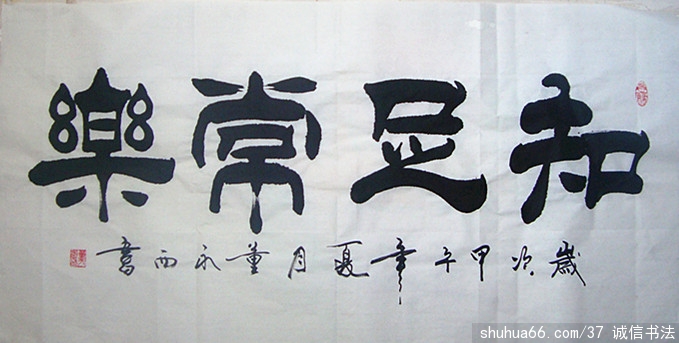 知足常樂
歲次甲午年夏月董永西書
shuhua66.com/37 诚信书法